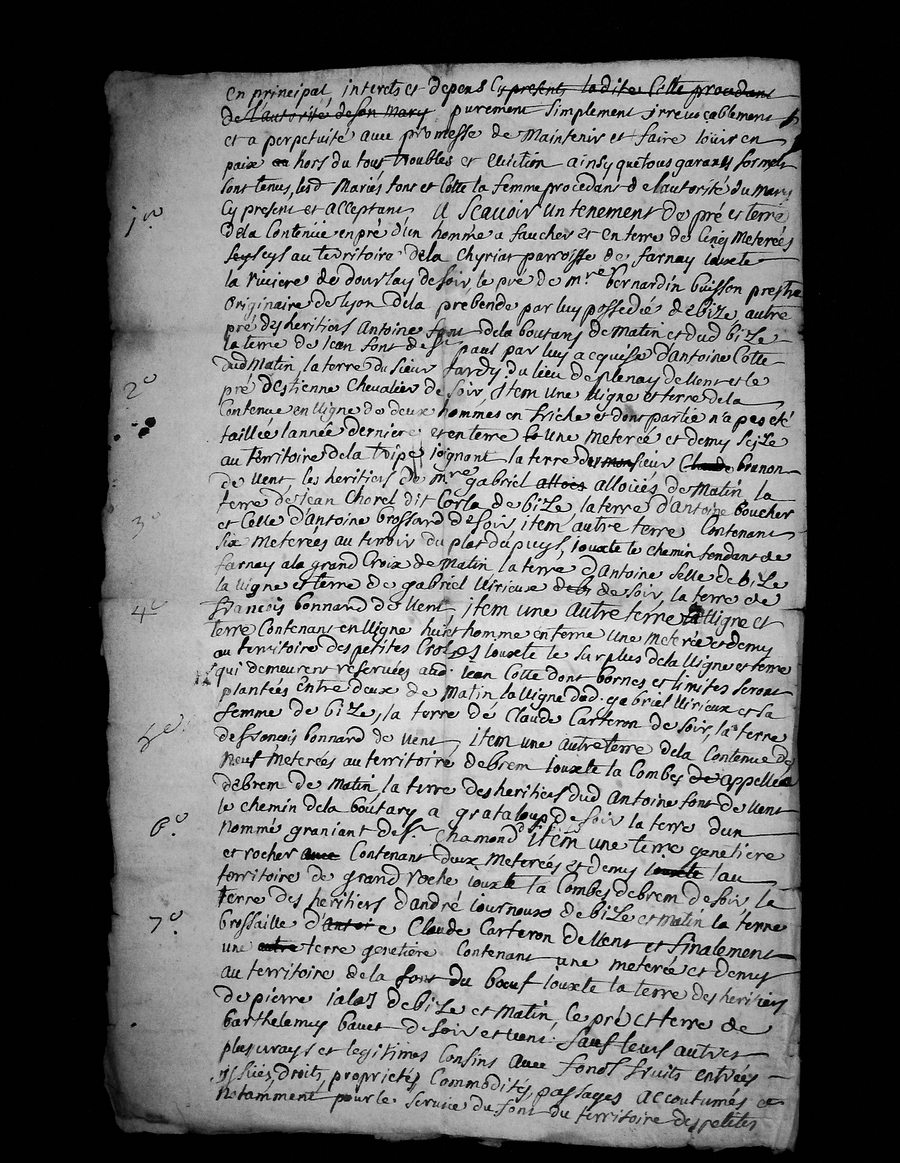 en principal interets et depens Cy present, ladite Cotte procedant
de l'autorité de son mary purement simplement irrevocablement
et a perpetuité avec promesse de Maintenir et faire iouir en
paix au hors du tous troubles et eviction ainsy que tous garants formels
sont tenus, lesd Mariés font et Cotte la femme procedant de l'autorité du mary
Cy present et acceptant A Scavoir un tenement de pré et terre
1o. dela Contenue en pré d'un homme a faucher et en terre de Cinq Meterées
au territoire dela Chyriat parroisse de farnay iouxte
la riviere de dourlay de soir, le pré de mre. bernardin buisson prestre
originaire de lyon dela prebende par luy possedées de bize, autre
pré des heritiers Antoine font dela boutary de Matin et dud bize
la terre de Jean font de St. paul par luy acquise d'antoine Cotte
dud Matin, la terre du sieur fardy du lieu de plenay de vent et le
2o pré d'estienne Chevalier de soir, item une vigne et terre dela
Contenue en vigne de deux hommes en friche et dont partie n'a pas eté
taillée l'année derniere et en terre une meterée et demy size
au territoire dela tripe joignant la terre du monsieur Claude brunon
de vent, les heritiers de mre gabriel allouës de Matin la
terre de Jean Chorel dit Corla de bize, la terre d'antoine boucher
3o et Celle d'antoine brossard de soir item autre terre Contenant
six meterées au terroir du plat du puys, iouxte le chemin tendant de
farnay a la grand Croix de matin la terre d'antoine selle de bize
la vigne et terre de gabriel virieux de soir, la terre de
4o francois bonnard de vent, item une autre terre vigne et
terre Contenant en vigne huict homme en terre une meterée et demy
au territoire des petites Croizes iouxte le surplus dela vigne et terre
qui demeurent reservées aud. iean Cotte dont bornes et limites seront
plantées Entre deux de Matin la vigne dud. gabriel virieux et sa
femme de bize, la terre de Claude Carteron de soir, la terre
5e. de francois bonnard de vent, item une autre terre dela Contenue de
neuf meterées au territoire debrem iouxte la Combes de appellée
debrem de matin la terre des heritiers dud antoine font de vent
le chemin dela boutary a grataloup de soir la terre d'un
6o. nommé graniant de St. Chamond item une terre genetiere
et rocher avec Contenant deux meterées et demy iouxte au
territoire de grand roche iouxte la Combes debrem de soir la
terre des heritiers d'andré iournoux de bize et matin la terre
7o. brossaille d'antoi e Claude Carteron de vent et finalement
une autre terre genetiere Contenant une meterée et demy
au territoire dela font du boeuf iouxte la terre des heritiers
de pierre ialas de bize et Matin le pré et terre de
barthelemy bavet de soir et vent. Sauf leurs autres
plus vrays et legitimes Confins avec fonds fruits entrées
issües, droits, proprietés, Commodités, passages accoutumés et
notamment pour le service du font du territoire des petites